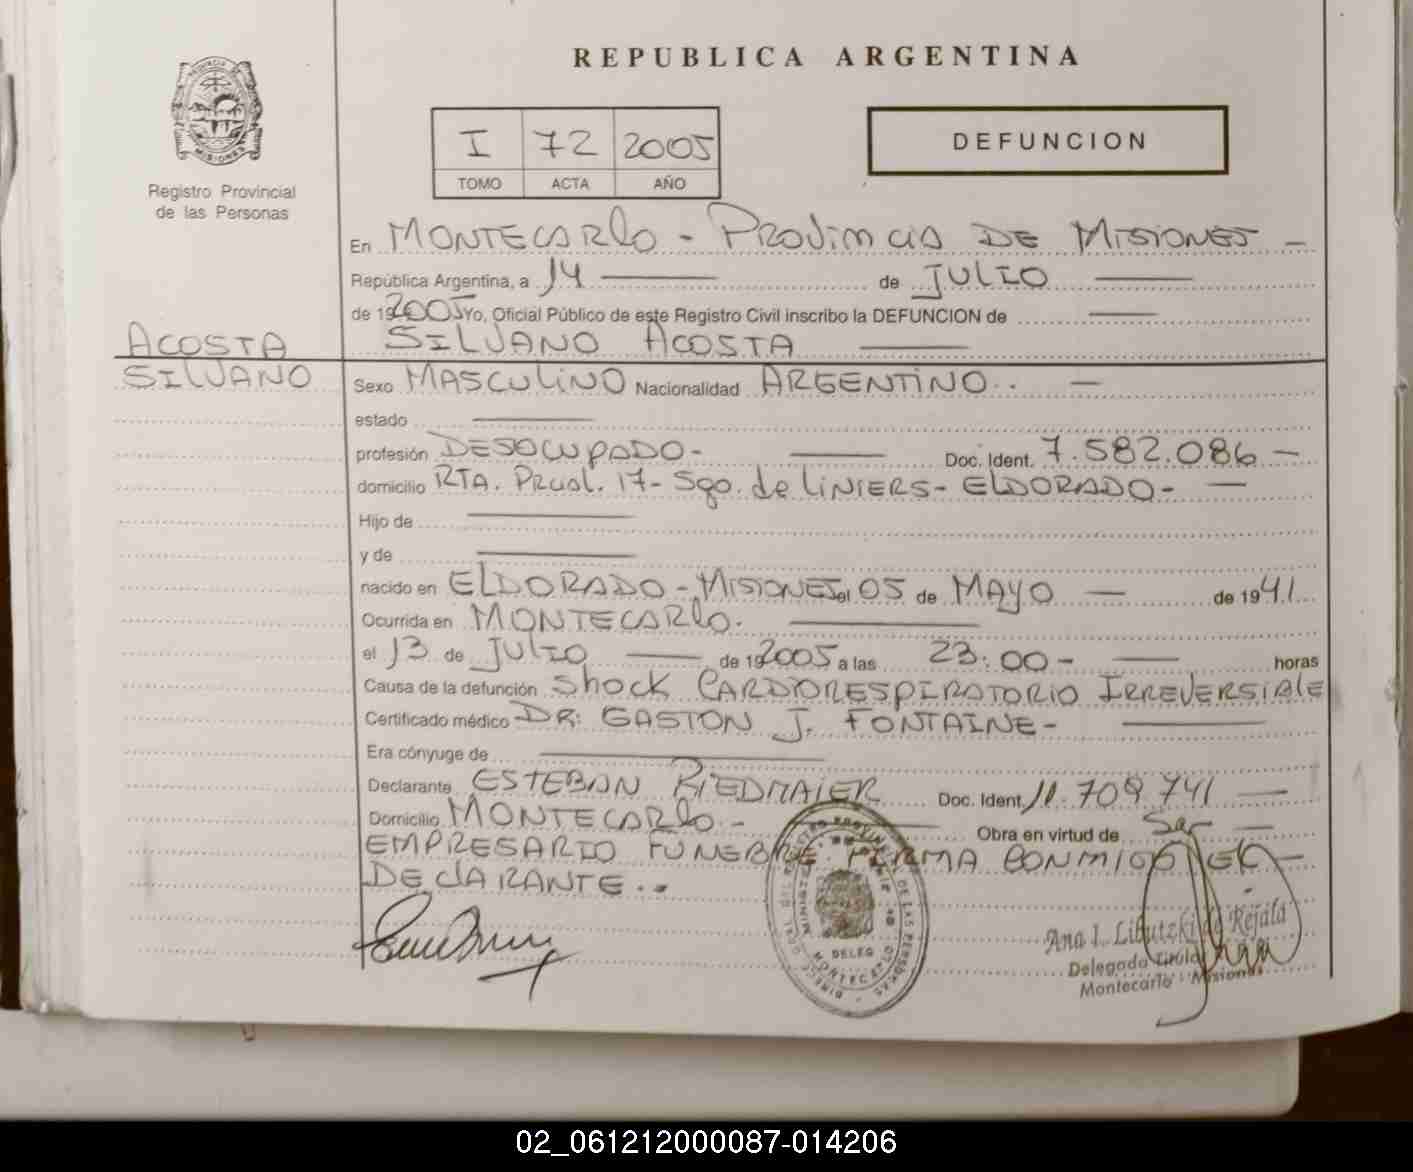 REPUBLICA ARGENTINA
PROVINCIA DE MISIONES
Registro Provincial
de las Personas
I 72 2005
TOMO ACTA AÑO
DEFUNCION
En MONTECARLO - PROVINCIA DE MISIONES -
República Argentina, a 14 de JULIO
de 192005 Yo, Oficial Público de este Registro Civil inscribo la DEFUNCION de
ACOSTA SILVANO ACOSTA
SILVANO Sexo MASCULINO Nacionalidad ARGENTINO. -
estado
profesión DESOCUPADO- Doc. Ident. 7.582.086 -
domicilio RTA. PRVAL. 17 - Sgo. de LINIERS - ELDORADO - -
Hijo de
y de
nacido en ELDORADO - MISIONES el 05 de MAYO - de 1941
Ocurrida en MONTECARLO.
el 13 de JULIO de 192005 a las 23:00 - horas
Causa de la defunción SHOCK CARDIORESPIRATORIO IRREVERSIBLE
Certificado médico DR: GASTON J. FONTAINE -
Era cónyuge de
Declarante ESTEBAN RIEDMAIER Doc. Ident. 11.709.741 -
Domicilio MONTECARLO - Obra en virtud de Ser -
EMPRESARIO FUNEBRE FIRMA CONMIGO EL -
DECLARANTE..
DELEG
MONTECARLO
Ana I. Libutzki de Rejala
Delegada Titular
Montecarlo - Misiones
02_061212000087-014206